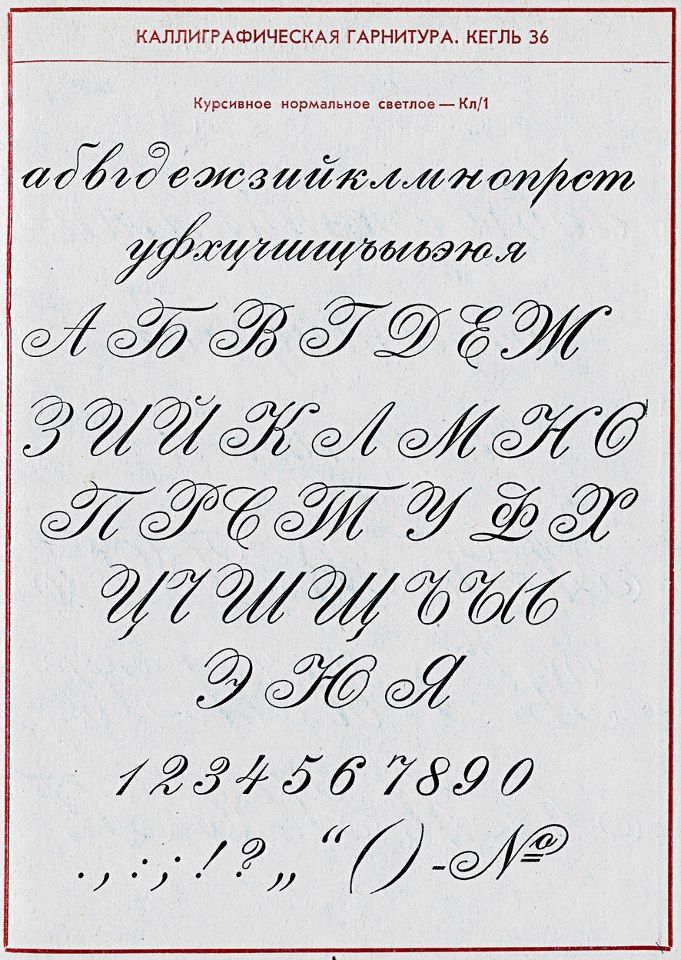 КАЛЛИГРАФИЧЕСКАЯ ГАРНИТУРА. КЕГЛЬ 36
Курсивное нормальное светлое — Кл/1
абвгдежзийклмнопрст
уфхцчшщъыьэюя
А Б В Г Д Е Ж
З И Й К Л М Н О
П Р С Т У Ф Х
Ц Ч Ш Щ Ъ Ы Ь
Э Ю Я
1 2 3 4 5 6 7 8 9 0
. , : ; ! ? „ “ ( ) - №